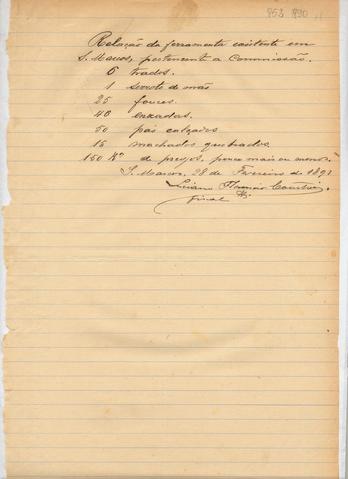 853 890
Relação da ferramenta existente em
S. Marcos, pertencente a Commissão.
6 trados.
1 serrote de mão
25 fouces.
40 enxadas.
50 pás calçadas
15 machados quebrados.
150 Kos de pregos, pouco mais ou menos.
S. Marcos, 28 de Fevereiro de 1891
Luciano
fiscal